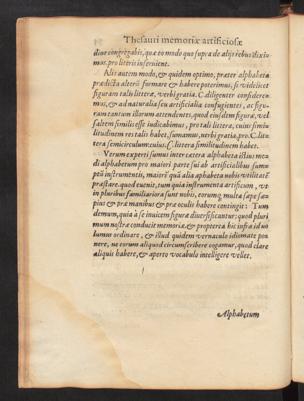 Thesauri memoriæ artificiosæ
diue congregabis, quæ eo modo quo supra de alijs rebus diximus
mus. pro literis inseruient.
Alio autem modo, & quidem optimo, præter alphabeta
prædicta alterũ formare & habere poterimus, si videlicet
figuram talis litteræ, verbi gratia. C. diligenter considere
mus, & ad naturalia seu artificialia confugientes, ac figu-
ram tantum illarum attendentes, quod eiusdem figuræ, vel
saltem similis esse iudicabimus, pro tali littera, cuius simi
litudinem res talis habet, sumamus, verbi gratia, pro. C. lit
tera semicirculum: cuius. C. littera similitudinem habet.
Verum experti sumus inter cætera alphabeta illius mo
di alphabetum pro maiori parte sui ab artificialibus sum
ptũ instrumentis, maiorẽ quã alia aphabeta nobis vtilitatẽ
præstare. quod euenit, tum quia instrumenta artificum, vt
in pluribus familiariora sunt nobis, eorumq́; multa sæpe sæ
pius & præ manibus & præ oculis habere contingit: Tum
demum, quia à se inuicem figura diuersificantur: quod pluri
mum nostræ conducit memoriæ, & propterea hic infra id vo
lumus ordinare, & illud quidem vernaculo idiomate po
nere, ne eorum aliquod circumscribere cogamur, quod clare
aliquis habere, & aperto vocabulo intelligere vellet.
Alphabetum